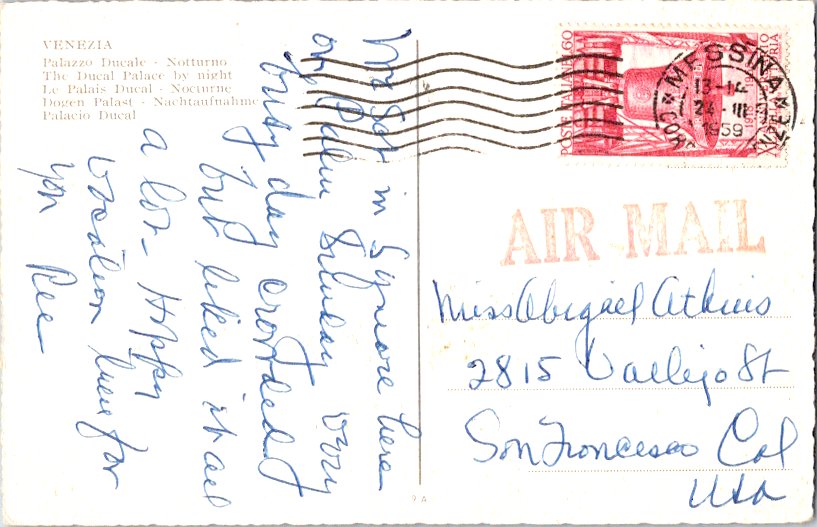 VENEZIA
Palazzo Ducale - Notturno
The Ducal Palace by night
Le Palais Ducal - Nocturne
Dogen Palast - Nachtaufnahme
Palacio Ducal
We got in here
on Palm Sunday very
busy day crowded
but liked it all
a lot - Happy
vacation here for
you Ree
POSTE ITALIANE L.60
MESSINA
13-14
24 - III
1959
AIR MAIL
Miss Abigael Atkins
2815 Vallejo St
San Francesco Cal
USA